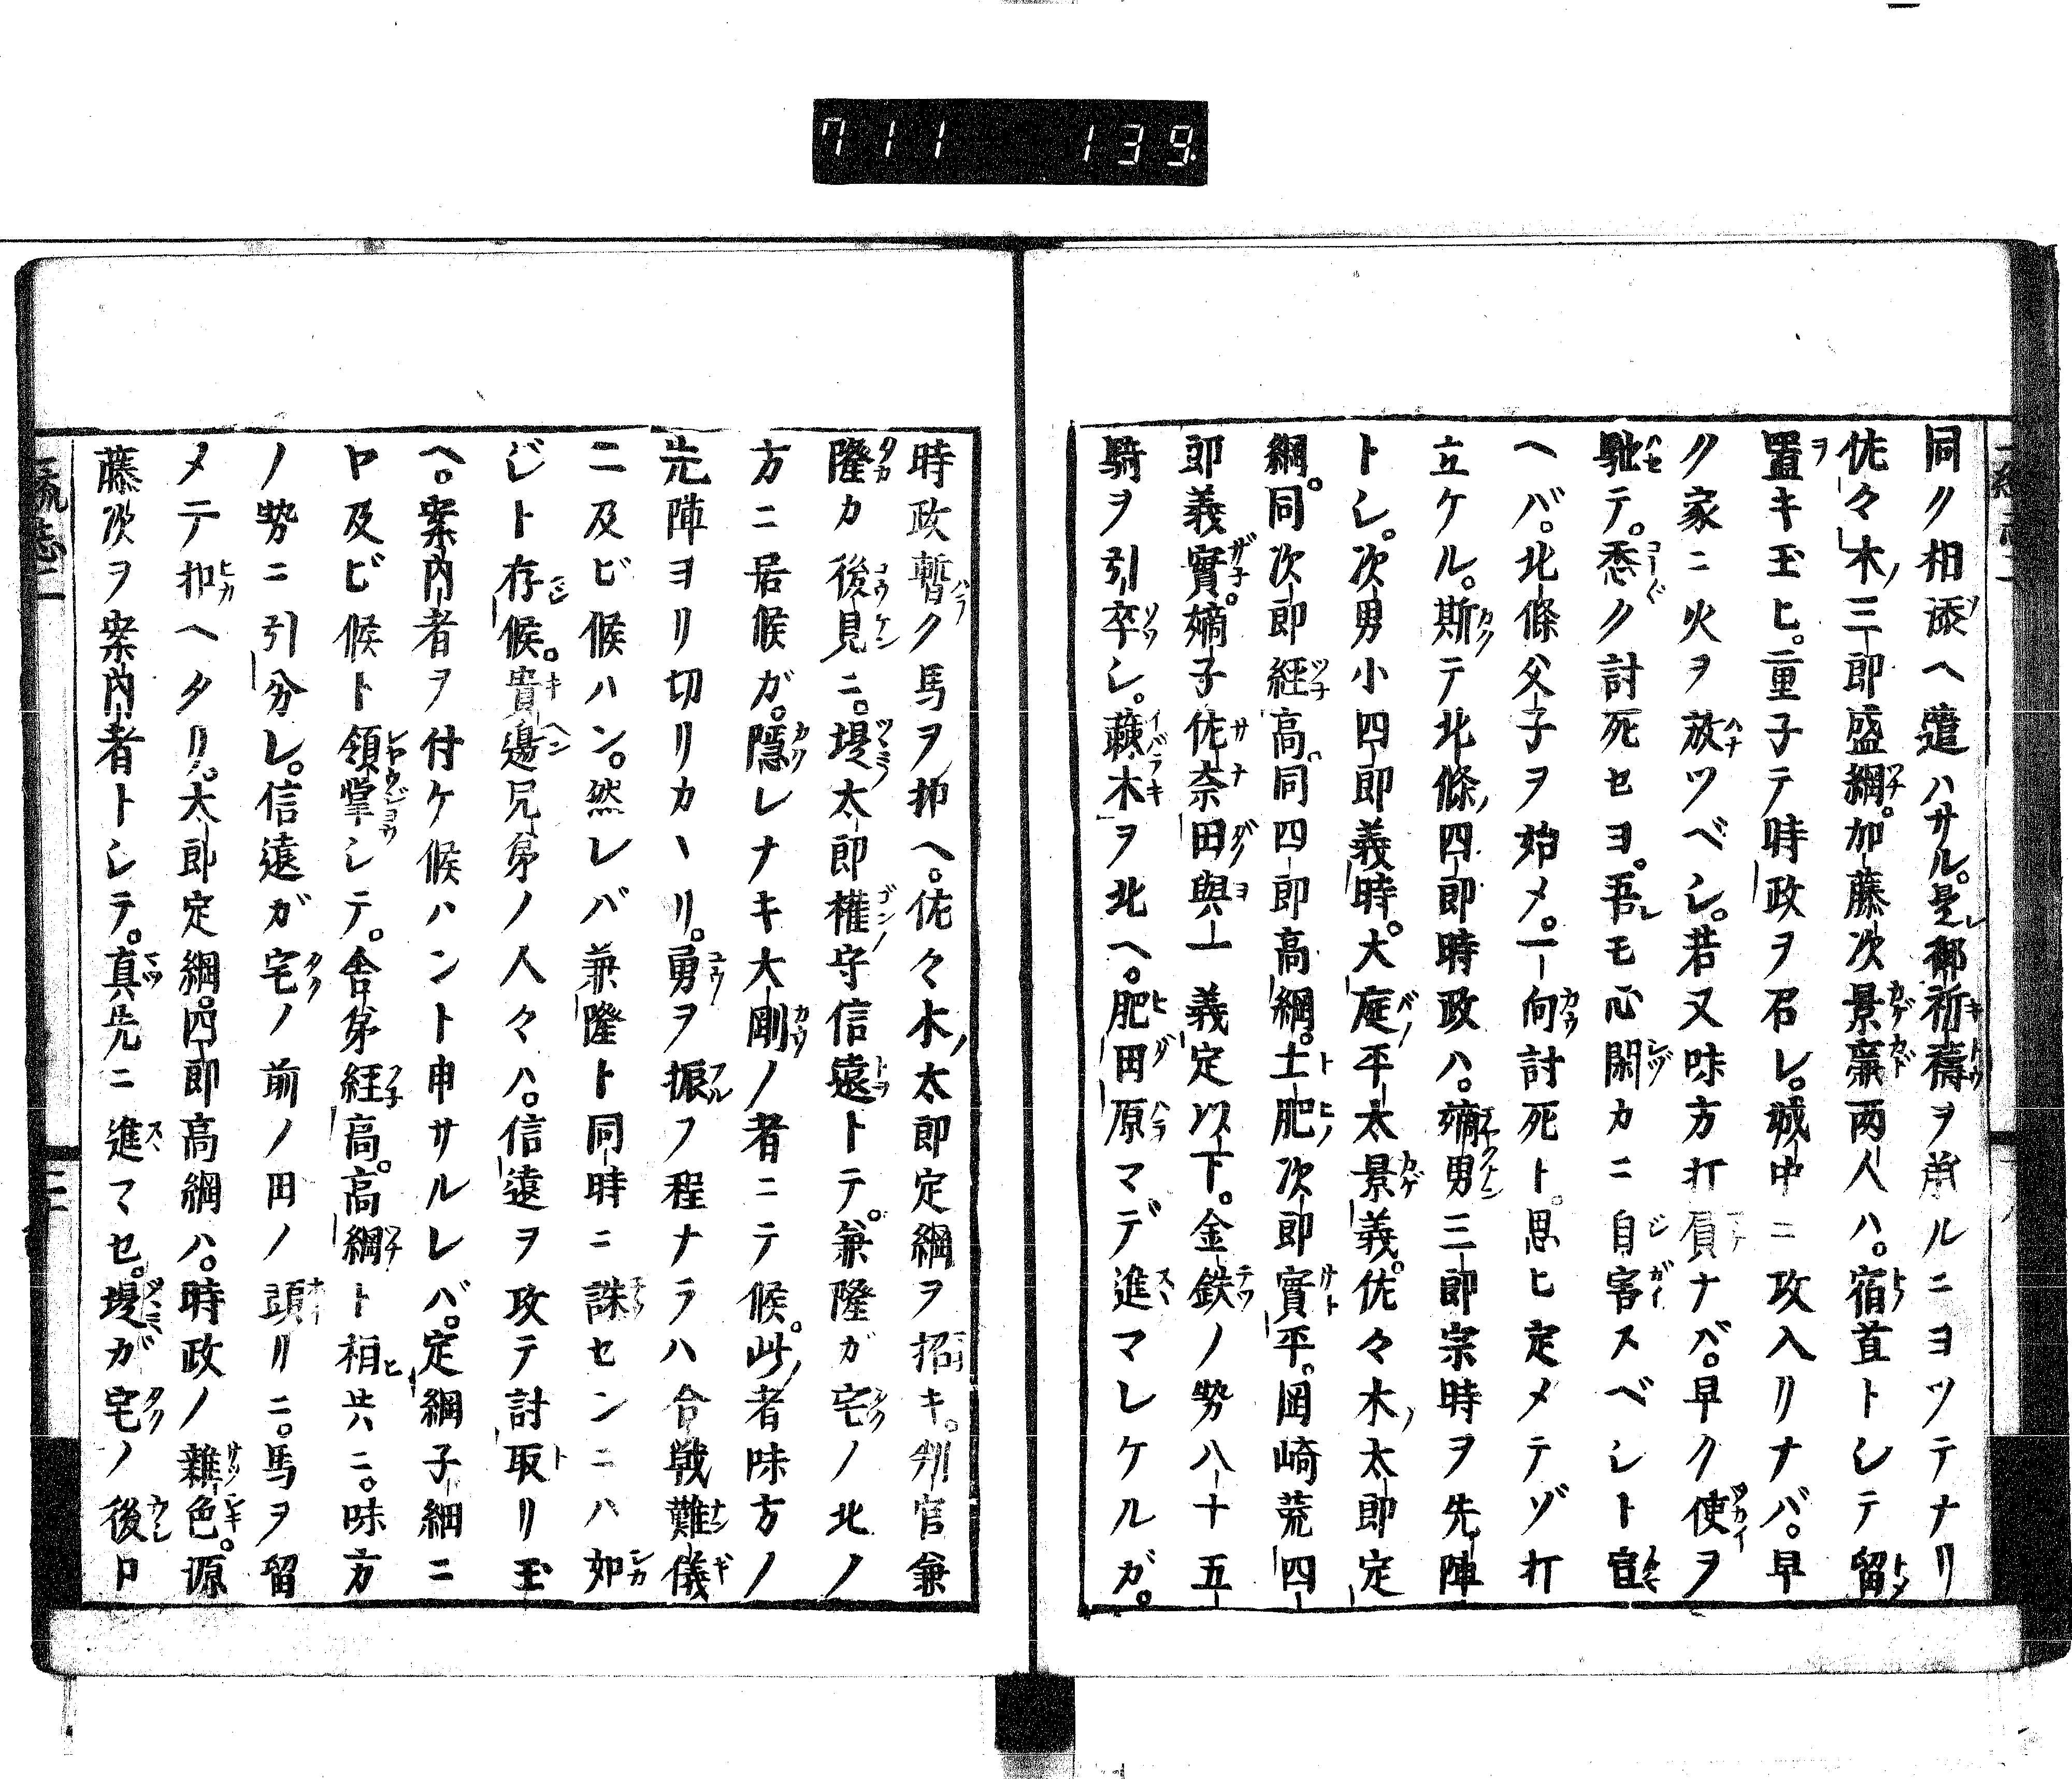 711 139
同ク相添ヘ遣ハサル。是レ御祈禱ヲ承ルニヨツテナリ
佐々木ノ三郎盛綱。加藤次景廉両人ハ。宿直トシテ留
置キ玉ヒ。童子テ時政ヲ召シ。城中ニ攻入リナバ。早
ク家ニ火ヲ放ツベシ。若又味方打負ナバ。早ク使ヲ
馳テ。悉ク討死セヨ。吾レモ心閑カニ自害スベシト宣
ヘバ。北條父子ヲ始メ。一向討死ト。思ヒ定メテゾ打
立ケル。斯テ北條ノ四郎時政ハ。嫡男三郎宗時ヲ先陣
トシ。次男小四郎義時。大庭平太景義。佐々木ノ太郎定
綱。同次郎経高。同四郎高綱。土肥次郎實平。岡崎荒四
郎義實。嫡子佐奈田與一義定以下。金鉄ノ勢八十五
騎ヲ引卒シ。蕀木ヲ北ヘ。肥田原マデ進マレケルガ。
時政暫ク馬ヲ扣ヘ。佐々木ノ太郎定綱ヲ招キ。判官兼
隆カ後見ニ。堤太郎権守信遠トテ。兼隆ガ宅ノ北ノ
方ニ居候ガ。隠レナキ大剛ノ者ニテ候。此ノ者味方ノ
先陣ヨリ切リカヽリ。勇ヲ振フ程ナラハ合戦難儀
ニ及ビ候ハン。然レバ兼隆ト同時ニ誅センニハ如
ジト存候。貴邊兄弟ノ人々ハ。信遠ヲ攻テ討取リ玉
ヘ。案内者ヲ付ケ候ハント申サルレバ。定綱子細ニ
ヤ及ビ候ト領掌シテ。舎弟経高。高綱ト相共ニ。味方
ノ勢ニ引分レ。信遠ガ宅ノ前ノ田ノ頭リニ。馬ヲ留
メテ扣ヘタリ。太郎定綱。四郎高綱ハ。時政ノ雜色。源
藤次ヲ案内者トシテ。真先ニ進マセ。堤ガ宅ノ後ロ